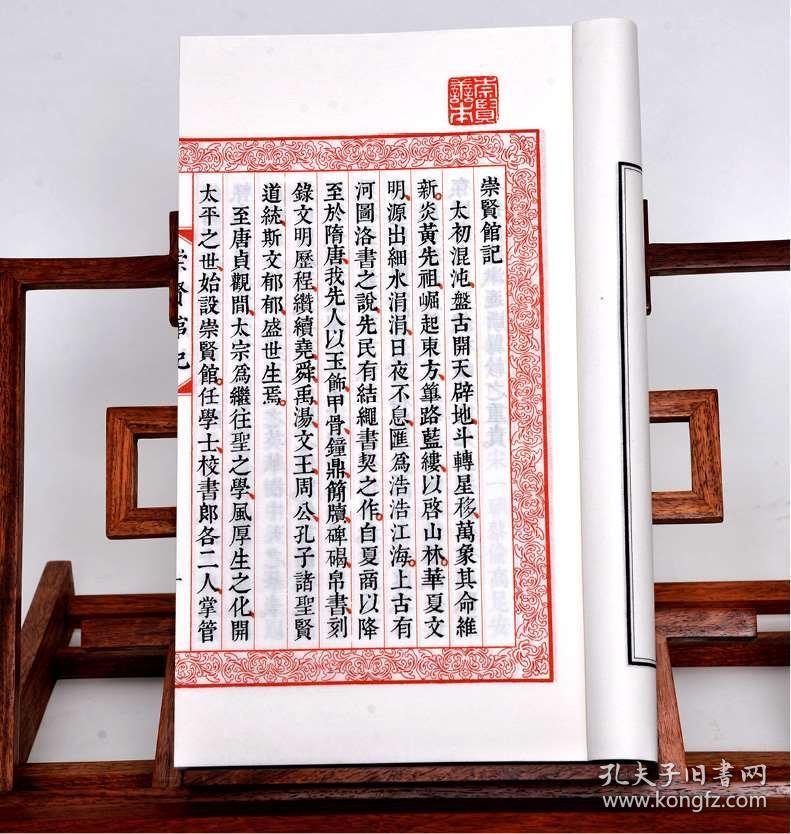 崇賢善本
崇賢館記
太初混沌盤古開天辟地斗轉星移萬象其命維
新炎黃先祖崛起東方篳路藍縷以啓山林華夏文
明源出細水涓涓日夜不息匯爲浩浩江海上古有
河圖洛書之說先民有結繩書契之作自夏商以降
至於隋唐我先人以玉飾甲骨鐘鼎簡牘碑碣帛書刻
錄文明歷程纘續堯舜禹湯文王周公孔子諸聖賢
道統斯文郁郁盛世生焉
至唐貞觀間太宗爲繼往聖之學風厚生之化開
太平之世始設崇賢館任學士校書郎各二人掌管
崇賢館記
孔夫子旧书网
www.kongfz.com